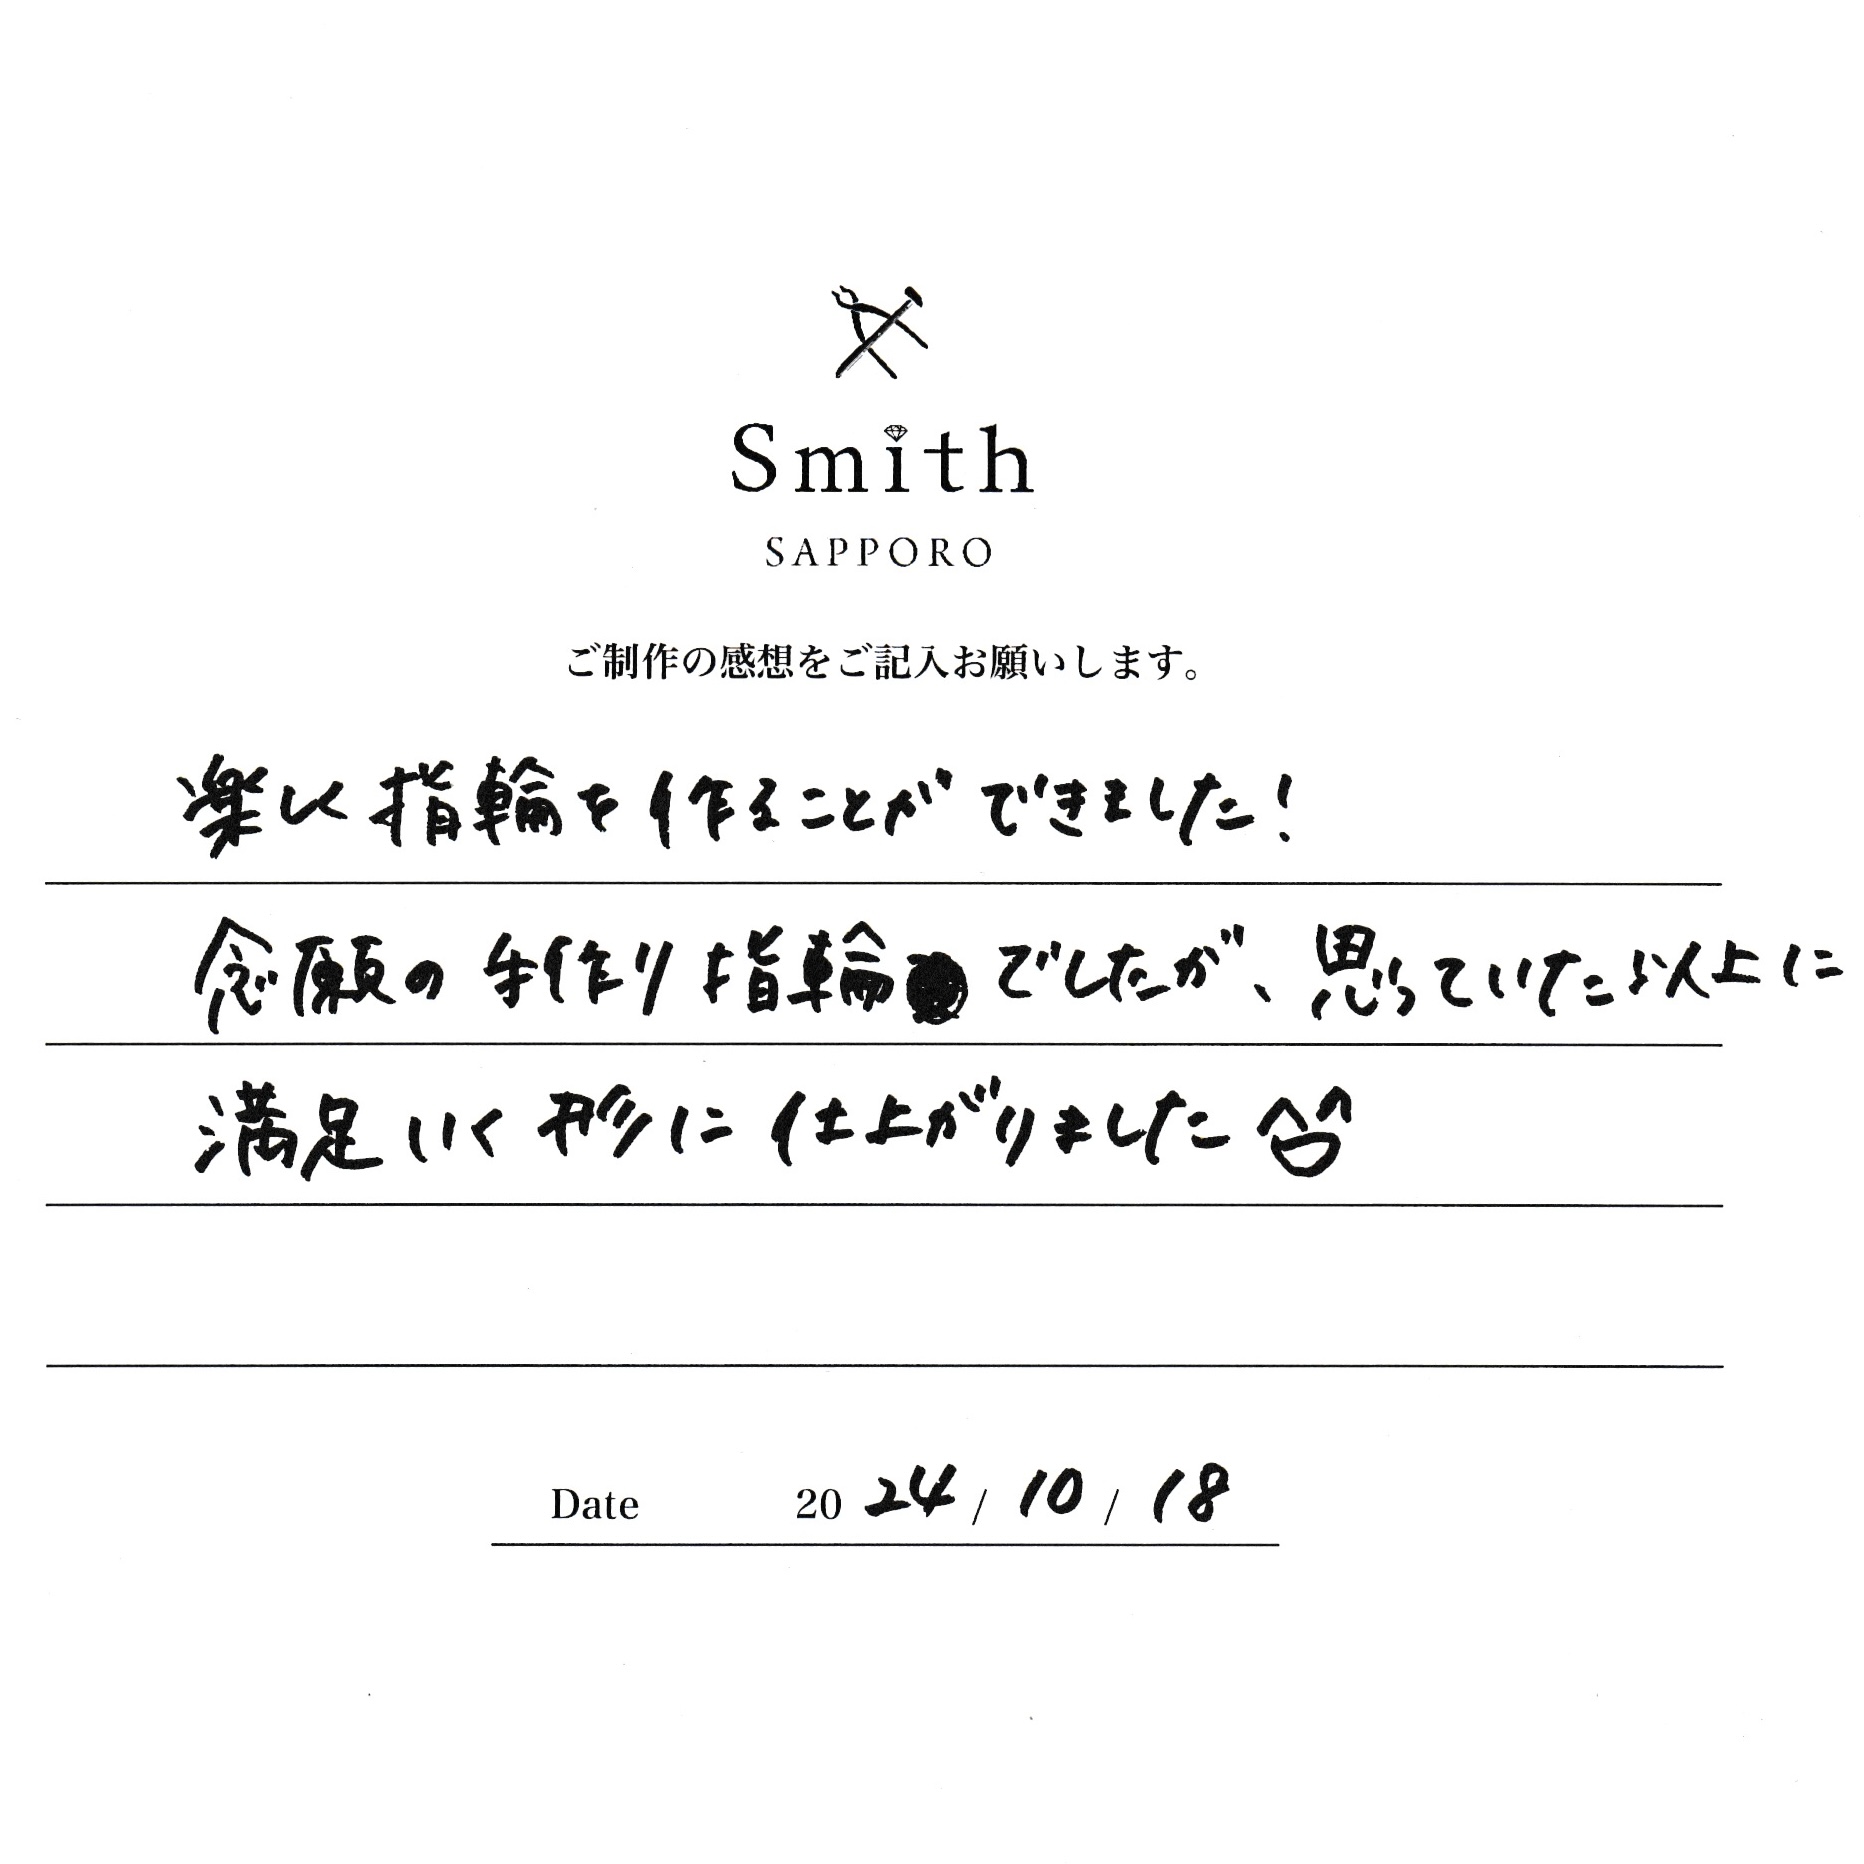 Smith
SAPPORO
ご制作の感想をご記入お願いします。
楽しく指輪を作ることができました!
念願の手作り指輪でしたが、思っていた以上に
満足いく形に仕上がりました
Date 2024/10/18